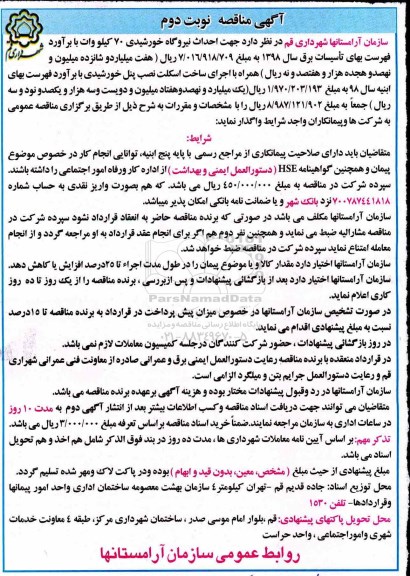 آگهی مناقصه نوبت دوم
سازمان آرامستانها شهرداری قم در نظر دارد جهت احداث نیروگاه خورشیدی ۷۰ کیلو وات با برآورد
فهرست بهای تأسیسات برق سال ۱۳۹۸ به مبلغ ۷/۰۱۶/۹۱۸/۷۰۹ ریال ( هفت میلیاردو شانزده میلیون و
نهصدو هجده هزار و هفتصد و نه ریال ) همراه با اجرای ساخت اسکلت نصب پنل خورشیدی با برآورد فهرست بهای
ابنیه سال ۹۸ به مبلغ ۱/۹۷۰/۲۰۳/۱۹۳ ریال(یک میلیارد و نهصدوهفتاد میلیون و دویست وسه هزار و یکصدو نود و سه
ریال ) جمعاً به مبلغ ۸/۹۸۷/۱۲۱/۹۰۲ ریال را با مشخصات و مقررات به شرح ذیل از طریق برگزاری مناقصه عمومی
به شرکت ها وپیمانکاران واجد شرایط واگذار نماید:
شرایط:
متقاضیان باید دارای صلاحیت پیمانکاری از مراجع رسمی با پایه پنج ابنیه، توانایی انجام کار در خصوص موضوع
پیمان و همچنین گواهینامه HSE ( دستورالعمل ایمنی و بهداشت ) از اداره کار ورفاه امور اجتماعی را داشته باشند.
سپرده شرکت در مناقصه به مبلغ ۴۵۰/۰۰۰/۰۰۰ ریال می باشد. که هم بصورت واریز نقدی به حساب شماره
۷۰۰۷۸۷۴۴۱۸۱۸ نزد بانک شهر و یا ضمانت نامه بانکی امکان پذیر میباشد.
سازمان آرامستانها مکلف می باشد در صورتی که برنده مناقصه حاضر به انعقاد قرارداد نشود سپرده شرکت در
مناقصه مشارالیه ضبط می نماید و همچنین نفر دوم هم اگر برای انجام عقد قرارداد به او مراجعه گردد و از انجام
معامله امتناع نماید سپرده شرکت در مناقصه ضبط خواهد شد.
سازمان آرامستانها اختیار دارد مقدار کالا و یا موضوع پیمان را در طول مدت اجراء تا ۲۵درصد افزایش یا کاهش دهد.
سازمان آرامستانها اختیار دارد بعد از بازگشائی پیشنهادات و پس ازبررسی ، برنده مناقصه را از یک روز تا ده روز
کاری اعلام نماید.
در صورت تشخیص سازمان آرامستانها در خصوص میزان پیش پرداخت در قرارداد به برنده مناقصه تا ۱۵درصد
نسبت به مبلغ پیشنهادی اقدام می نماید.
در روز بازگشائی پیشنهادات ، حضور شرکت کنندگان درجلسه کمیسیون معاملات لازم نمی باشد.
در قرارداد منعقده با برنده مناقصه رعایت دستورالعمل ایمنی برق و عمرانی صادره از معاونت فنی عمرانی شهرداری
قم و رعایت دستورالعمل جرایم بتن و میلگرد الزامی است.
سازمان آرامستانها در رد وقبول پیشنهادات مختار بوده و هزینه آگهی برعهده برنده مناقصه می باشد.
متقاضیان می توانند جهت دریافت اسناد مناقصه وکسب اطلاعات بیشتر بعد از انتشار آگهی دوم به مدت ۱۰ روز
در ساعات اداری به سازمان مراجعه نمایند.ضمناً خرید اسناد مناقصه براساس تعرفه مبلغ ۳/۰۰۰/۰۰۰ ریال می باشد.
تذکر مهم: بر اساس آیین نامه معاملات شهرداری ها ، مدت ده روز در بند فوق الذکر شامل هم اخذ و هم تحویل
اسناد می باشد.
مبلغ پیشنهادی از حیث مبلغ ( مشخص، معین، بدون قید و ابهام ) بوده ودر پاکت لاک ومهر شده تسلیم گردد.
محل توزیع اسناد: جاده قدیم قم -تهران کیلومتر۴ سازمان بهشت معصومه ساختمان اداری واحد امور پیمانها
وقراردادها- تلفن ۱۵۳۰
محل تحویل پاکتهای پیشنهادی: قم ،بلوار امام موسی صدر ، ساختمان شهرداری مرکز، طبقه ۴ معاونت خدمات
شهری وامور اجتماعی ، واحد حراست
روابط عمومی سازمان آرامستانها